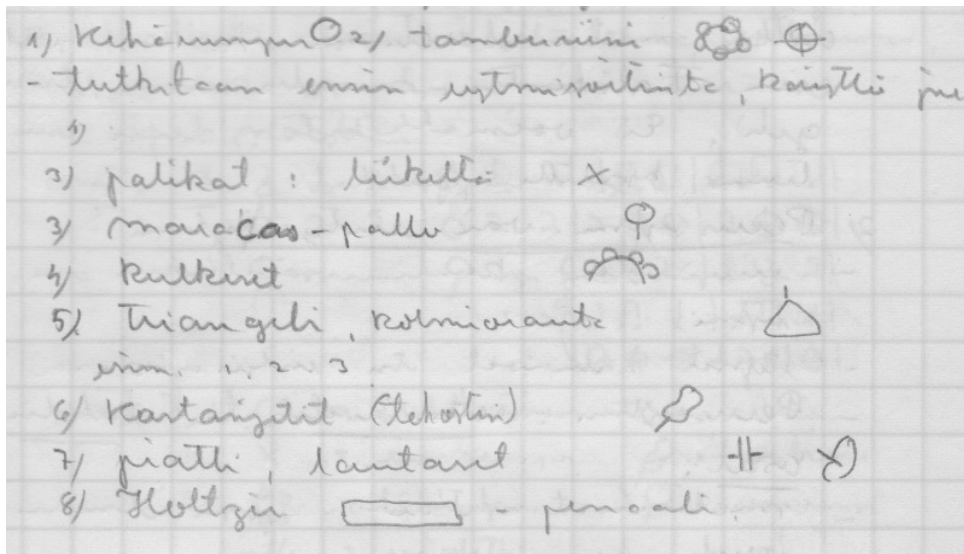 1) Kehärumpu 2) tamburiini
- tutkitaan ensin rytmisoitinta, käyttö
1)
3) palikat : liikettä
3) maracas - pallo
4) kulkuset
5) Triangeli, kolmioranta
esim. 1, 2 3
6) Kastanjetit (tehostin)
7) piatti, lautaset
8) Holtzii - penaali